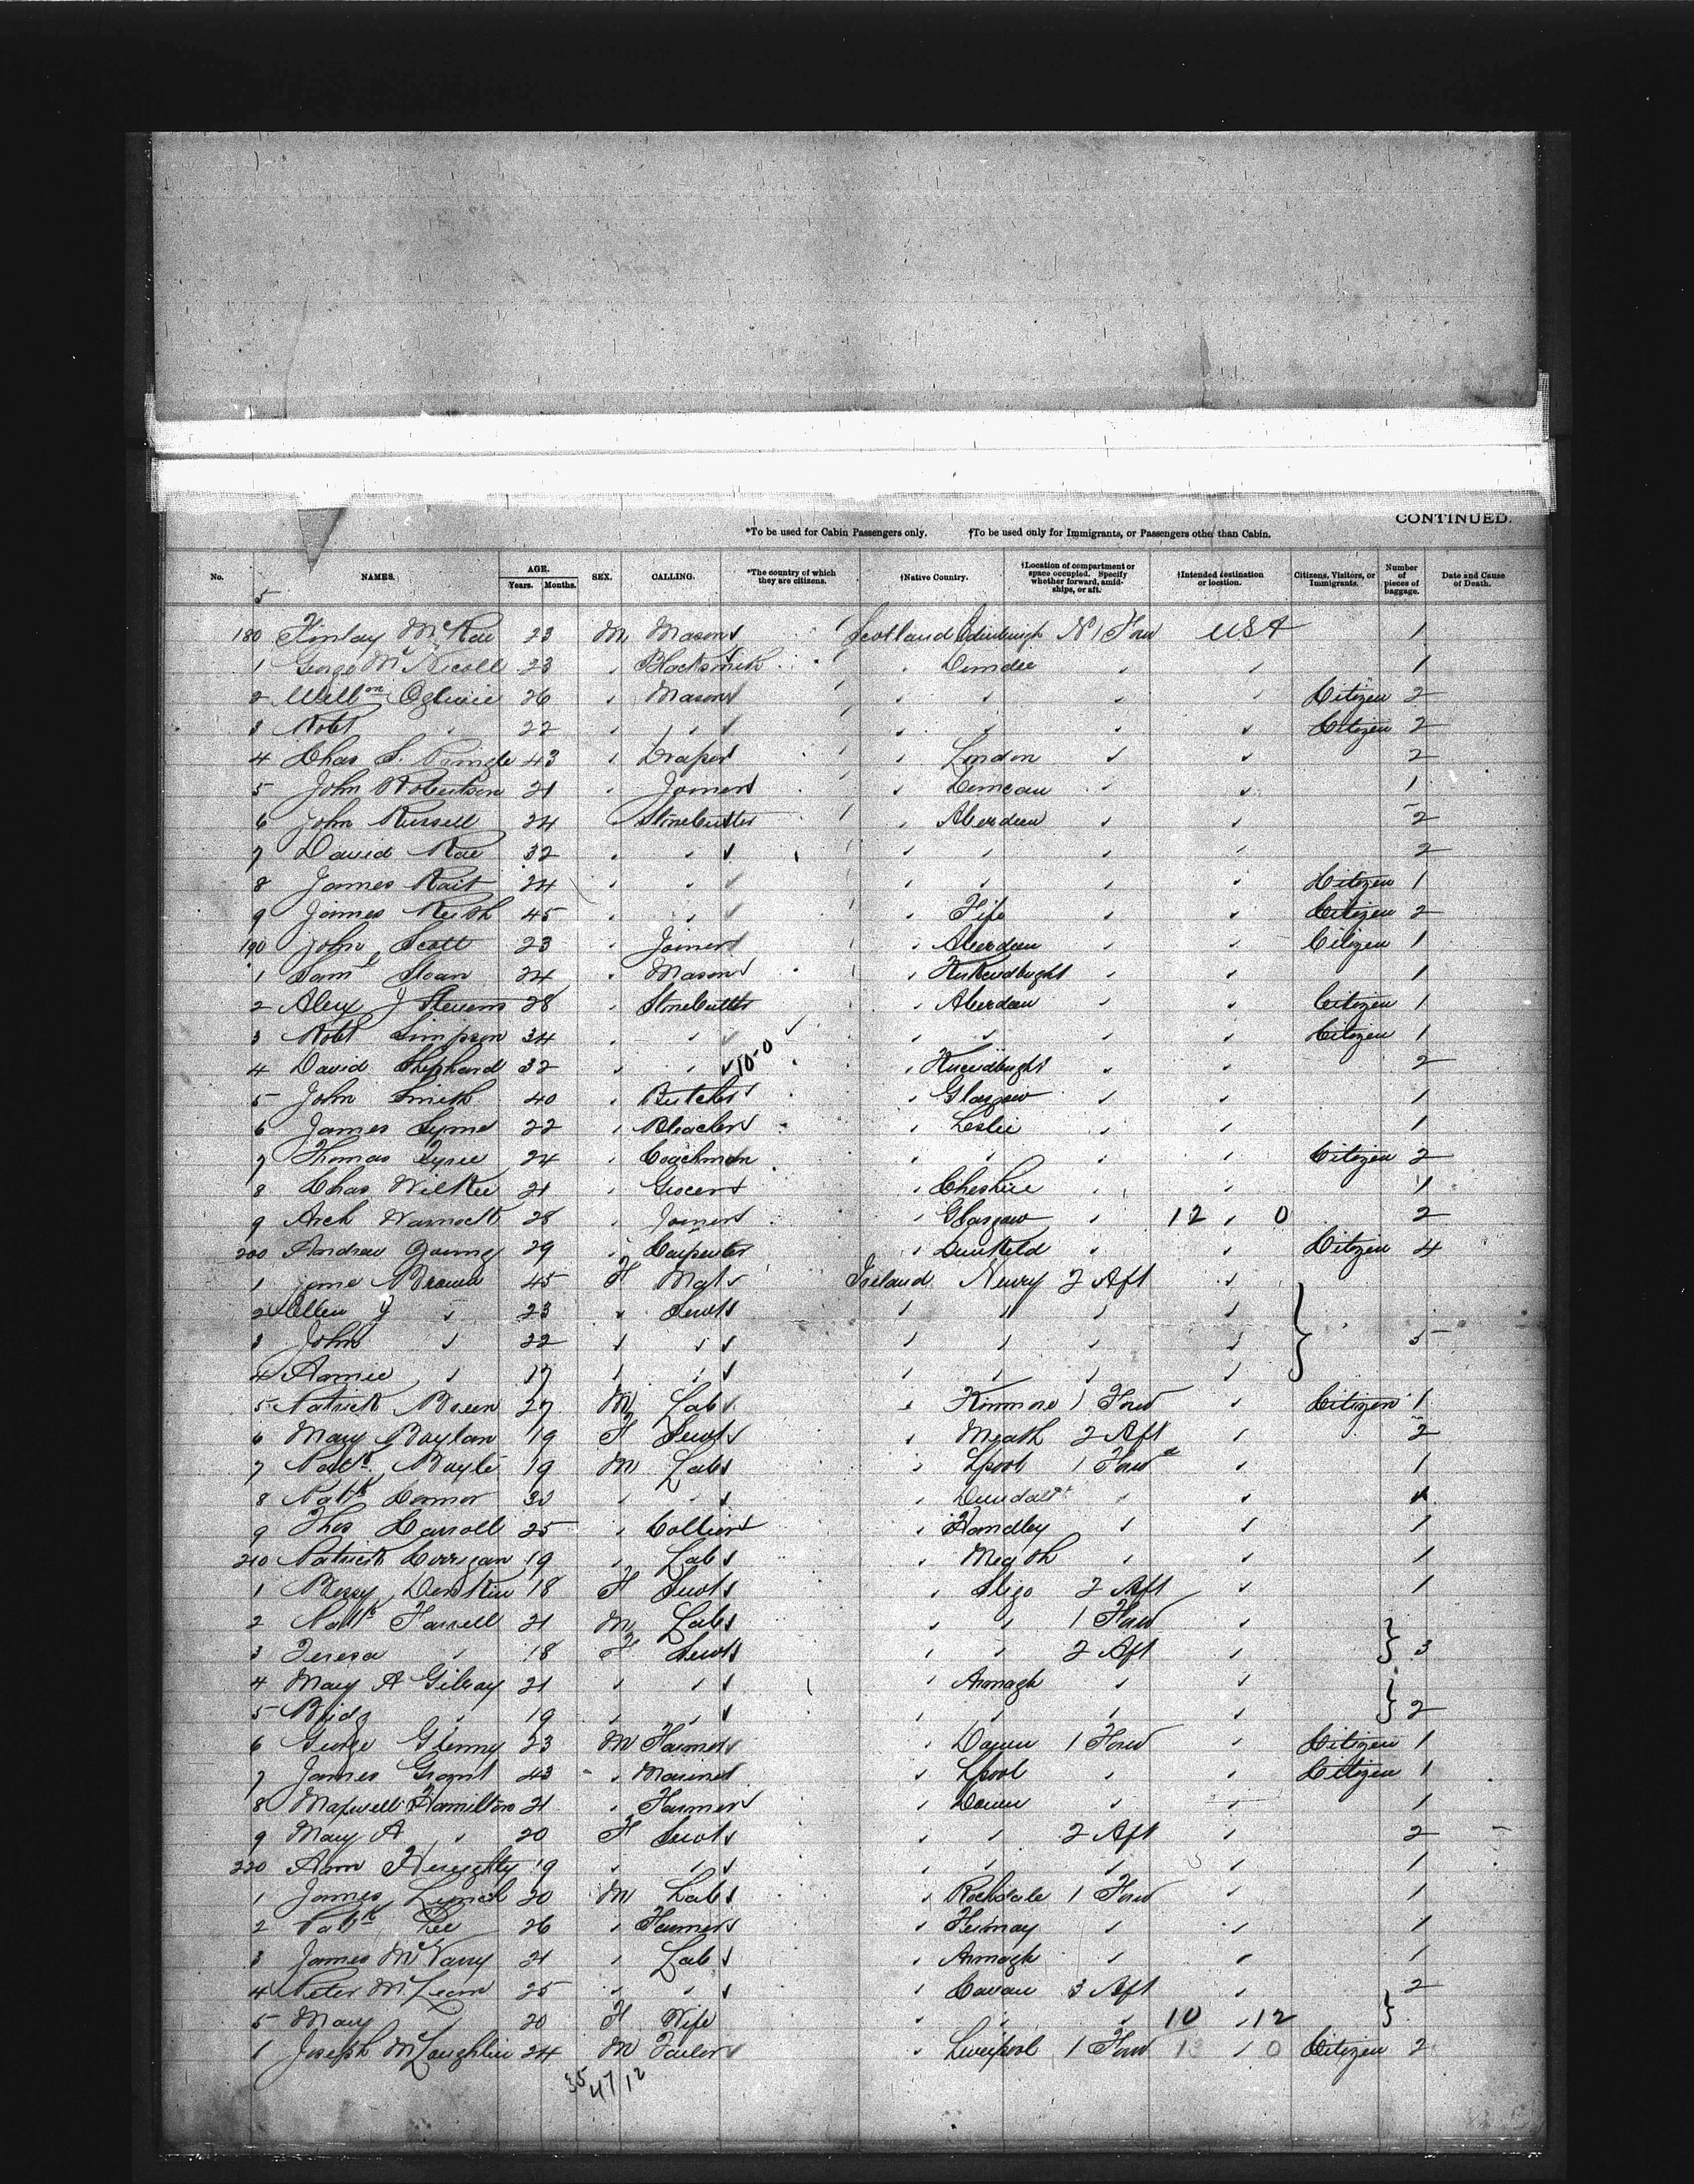 CONTINUED.
*To be used for Cabin Passengers only. †To be used only for Immigrants, or Passengers other than Cabin.
No. NAMES. AGE. Years. Months. SEX. CALLING. *The country of which they are citizens. †Native Country. †Location of compartment or space occupied. Specify whether forward, amidships, or aft. †Intended destination or location. Citizens, Visitors, or Immigrants. Number of pieces of baggage. Date and Cause of Death.
5
180 Finlay McRae 23 M Mason Scotland Edinburgh No 1 Forw USA 1
1 George McNicoll 23 " Blacksmith " Dundee " " 1
2 Willm Ogilvie 26 " Mason " " " " Citizen 2
3 Robt " 22 " " " " " " Citizen 2
4 Chas S. Pringle 43 " Draper " London " " 2
5 John Robertson 21 " Joiner " " " 1
6 John Russell 24 Stonecutter " Aberdeen " " 2
7 David Rae 32 " " " " " " 2
8 James Rait 24 " " " " " " Citizen 1
9 James Keith 45 " " " Fife " " Citizen 2
190 John Scott 23 " Joiner " Aberdeen " " Citizen 1
1 Saml Sloan 24 " Mason " " " 1
2 Alex J Stevens 28 " Stonecutter " Aberdeen " " Citizen 1
3 Robt Simpson 34 " " " " " " Citizen 1
4 David Shephard 32 " " 10-0 " " " 2
5 John Smith 40 " Butcher " Glasgow " " 1
6 James Syme 22 " Bleacher " Leslie " " 1
7 Thomas Tyrie 24 " Coachman " " " " Citizen 2
8 Chas Wilkie 21 " Grocer " Cheshire " " 1
9 Arch Warnock 28 " Joiner " Glasgow " 12 " 0 2
200 Andrew Young 29 " Carpenter " Dunkeld " " Citizen 4
1 Jane Brown 45 F Mat Ireland Newry 2 Aft "
2 Ellen J " 23 " Servt " " " "
3 John " 22 " " " " " " } 5
4 Annie " 17 " " " " " "
5 Patrick Breen 27 M Lab " 1 Forw " Citizen 1
6 Mary Boylan 19 F Servt " Meath 2 Aft " 2
7 Patk Boyle 19 M Lab " Lpool 1 Forwd " 1
8 Patk Connor 30 " " " Dundalk " "
9 Thos Carroll 25 " Collier " " " 1
210 Patrick Corrigan 19 " Lab " Meath " " 1
1 Bessy Durkin 18 F Servt " Sligo 2 Aft " 1
2 Patk Farrell 21 M Lab " " 1 Forw "
3 Teresa " 18 F Servt " " 2 Aft " } 3
4 Mary A Gilroy 21 " " " Armagh " "
5 Bridg " 19 " " " " " " } 2
6 George Glenny 23 M Farmer " Down 1 Forw " Citizen 1
7 James Grant 43 " Mariner " Lpool " " Citizen 1
8 Maxwell Hamilton 21 " Farmer " Down " " 1
9 Mary A " 20 F Servt " " 2 Aft " 2
220 Ann Heraghty 19 " " " " " " 1
1 James Lynch 20 M Lab " Rochdale 1 Forw " 1
2 Patk Lee 26 " Farmer " " " 1
3 James McVarry 21 " Lab " Armagh " " 1
4 Peter McLean 25 " " " Cavan 3 Aft " 2
5 Mary " 20 F Wife " " " 10 " 12 }
1 Joseph McLaughlin 24 M Tailor " Liverpool 1 Forw 13 " 0 Citizen 2
35 47/12